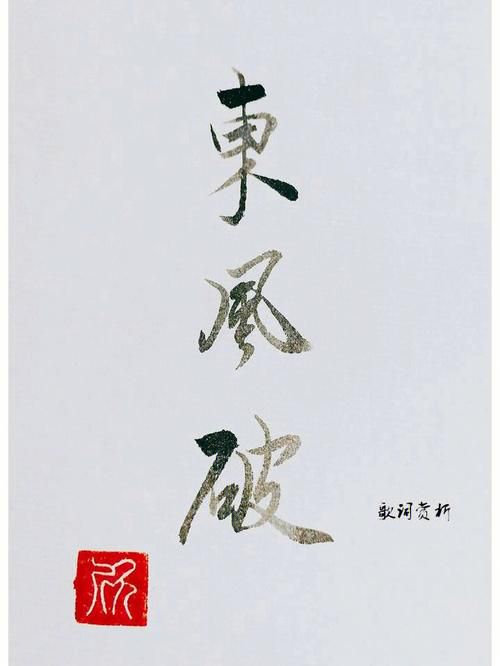 東風破
歌词赏析
欣